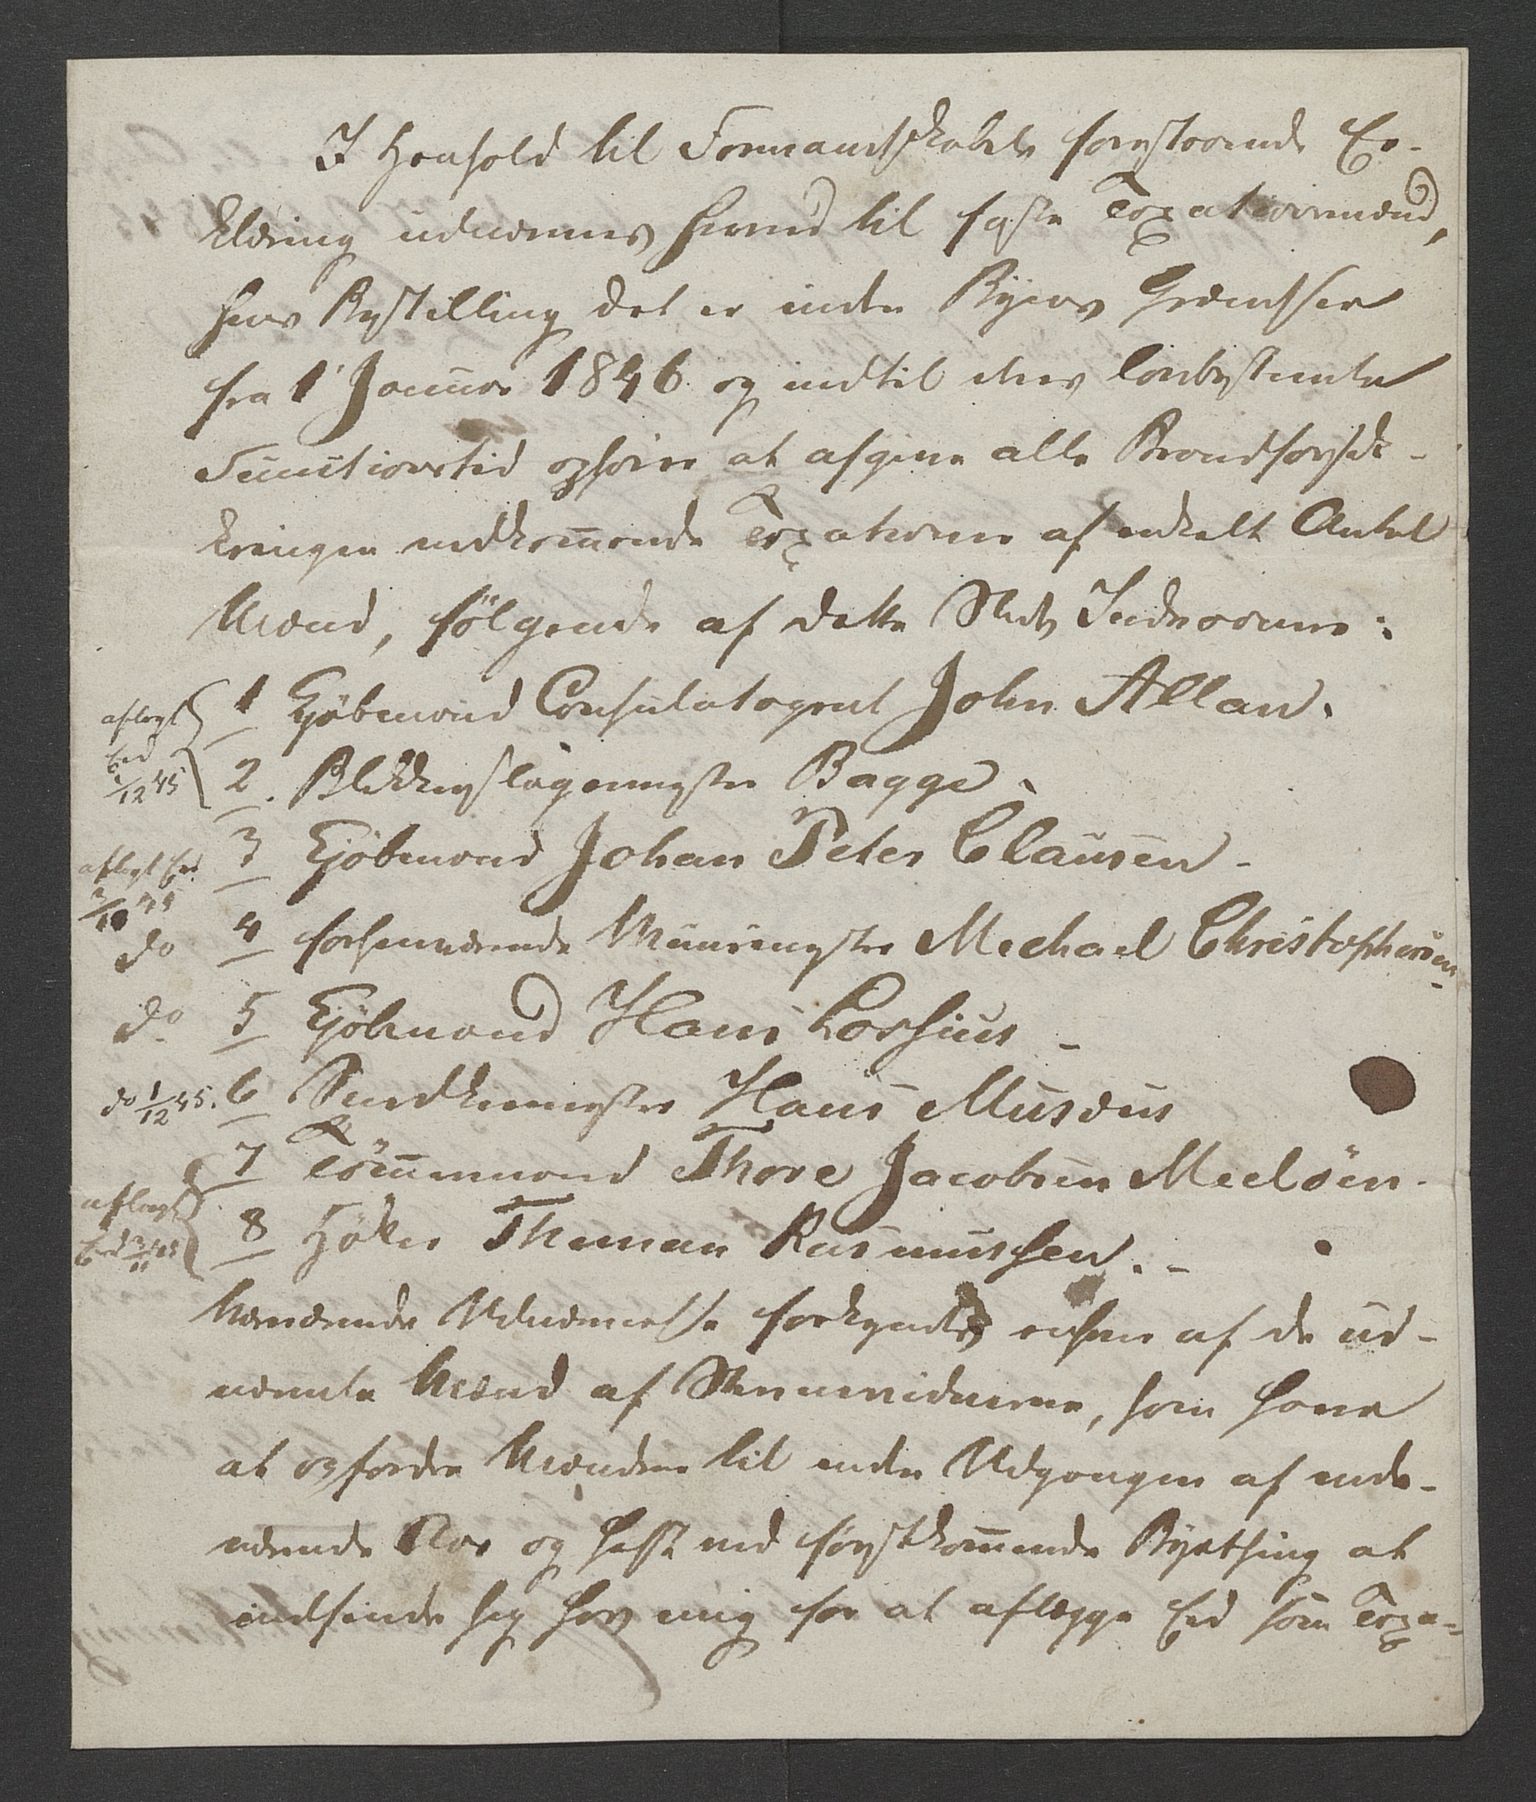 I Henhold til Formandskabets foranstaaende Er-
klæring udnævnes herved til faste Taxationsmænd,
hvis Bestilling det er inden Byens Grændser
fra 1' Januar 1846 og indtil deres lovbestemte
Functionstid ophører at afgive alle Brandforsik-
kringen vedkommende Taxationer af enkelt Antal
Mænd, følgende af dette Steds Indvaanere:
aflagt Eed 1/12 45
1 Kjøbmand Consulatagent John Allan.
2. Blikkenslagermester Bagge.
aflagt Eed
3 Kjøbmand Johan Peter Clausen -
do 4 forhenværende Muurmester Michael Christophersen
do 5 Kjøbmand Hans Lossius -
do 1/12 45. 6 Snedkermester Hans Musæus
7 Tømmermand Thore Jacobsen Meelöen.
aflagt Eed
8 Høker Thomas Rasmussen. -
Nærværende Udnævnelse forkyndes enhver af de ud-
nævnte Mænd af Stævnevidnerne, som have
at opfordre Mændene til inden Udgangen af inde-
værende Aar og helst ved førstkommende Bything at
indfinde sig hos mig for at aflægge Eed som Taxa-